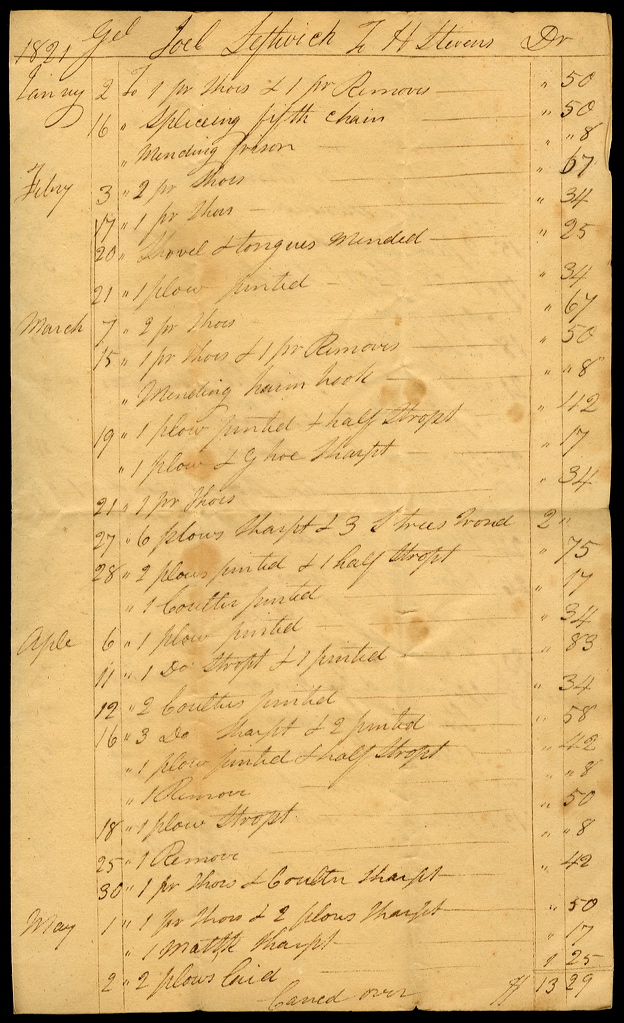 1821 Gel Joel Leftwich To H Stevens Dr
Janny 2 To 1 pr Shois & 1 pr Removes " 50
16 " Spliceing fifth chain " 50
" Mending prison " " 8
Febry 3 " 2 pr Shois " 67
17 " 1 pr Shois " 34
20 " Shovel & tongues Mended " 25
21 " 1 plow pinted " 34
March 7 " 2 pr Shois " 67
15 " 1 pr Shois & 1 pr Removes " 50
" Mending haim hook " " 8
19 " 1 plow pinted & half Stropt " 42
" 1 plow & G hoe Sharpt " 17
21 " 1 pr Shois " 34
27 " 6 plows Sharpt & 3 S trees Irond 2 "
28 " 2 plows pinted & 1 half Stropt " 75
" 1 Coulter pinted " 17
Aple 6 " 1 plow pinted " 34
11 " 1 Do Stropt & 1 pinted " 83
12 " 2 Coulters pinted " 34
16 " 3 Do Sharpt & 2 pinted " 58
" 1 plow pinted & half Stropt " 42
" 1 Remove " " 8
18 " 1 plow Stropt " 50
25 " 1 Remove " " 8
30 " 1 pr Shois & Coulter Sharpt " 42
May 1 " 1 pr Shois & 2 plows Sharpt " 50
" 1 Mattk Sharpt " 17
2 " 2 plows laid 1 25
Caried over $ 13 29